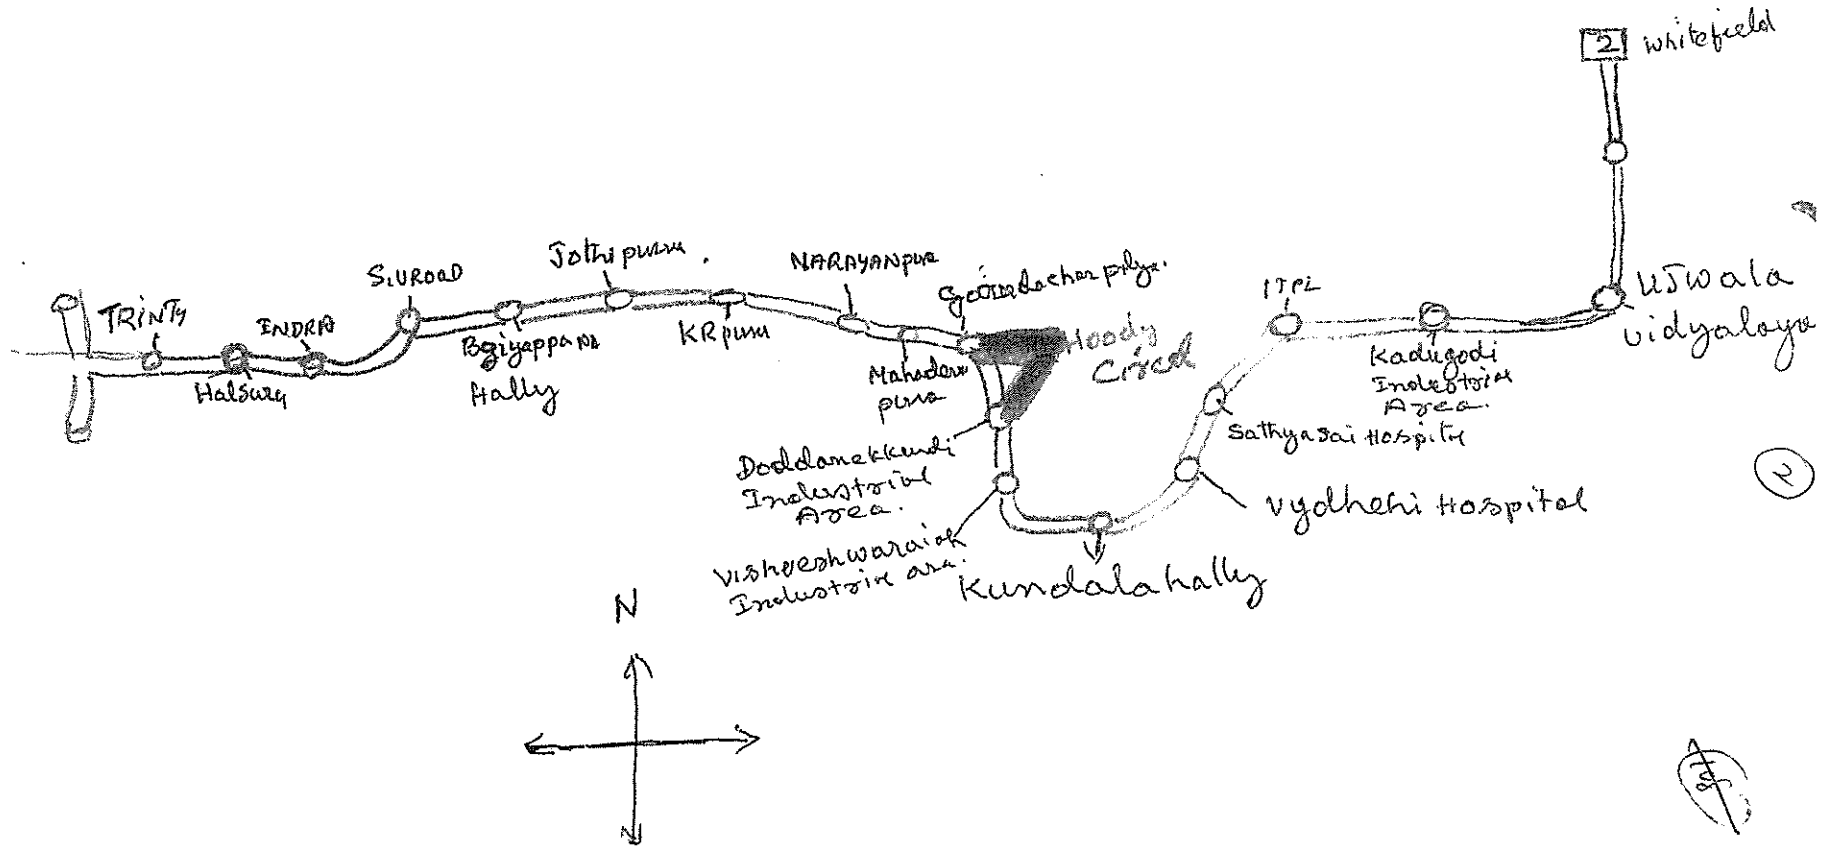 2 Whitefield
TRINTY
Halsurg
INDRA
S.V ROAD
Jothipuram.
KRpuru
NARAYANpura
Mahadeva
pura
Hoody
Circel
Doddanekkundi
Industrial
Area.
Vishveshwaraiah
Industrial area.
Kundalahally
Vydhehi Hospital
Sathyasai Hospital
ITPL
Kadugodi
Industrial
Area.
UJwala
Vidyalaya
2
N